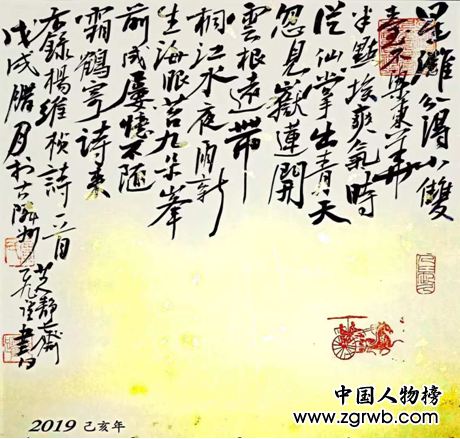 星分得小雙
臺不與東華
半點埃爽氣時
從仙掌出青天
忽見嶽蓮開
雲根遠帶
桐江水夜雨新
生海眼苔九朵峯
前成屢憶不隨
霜鶴寄詩來
右錄楊維楨詩一首
戊戌臘月於古隨州
芝靜齋
書
中国人物榜
www.zgrwb.com
2019 己亥年